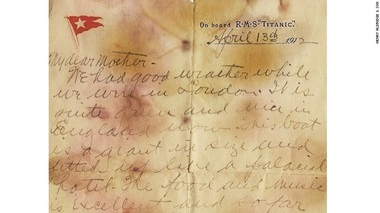 On board R.M.S. "TITANIC".
April 13th 1912
My dear Mother-
We had good weather while
we were in London. It is
quite green and nice in
England now. This boat
is a giant in size and
fitted up like a palacial
hotel. The food and music
is excellent and so far
HENRY ALDRIDGE & SON